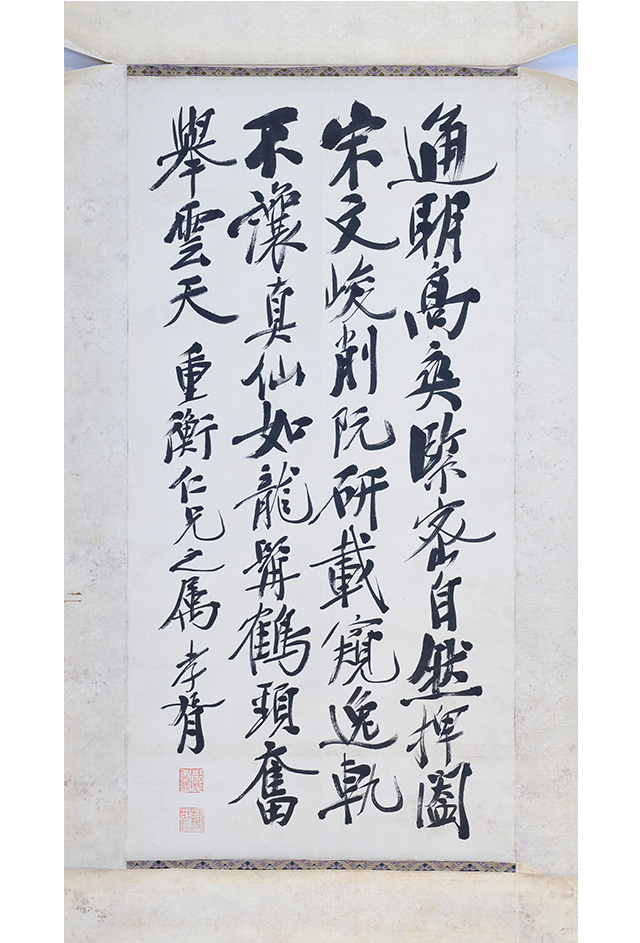 通明高爽緊密自然捭闔
宋文峻削阮研載窺逸軌
不讓真仙如龍髯鶴頸奮
舉雲天 重衡仁兄之屬 孝胥